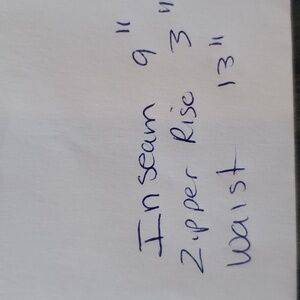 Inseam 9"
Zipper Rise 3"
Waist 13"